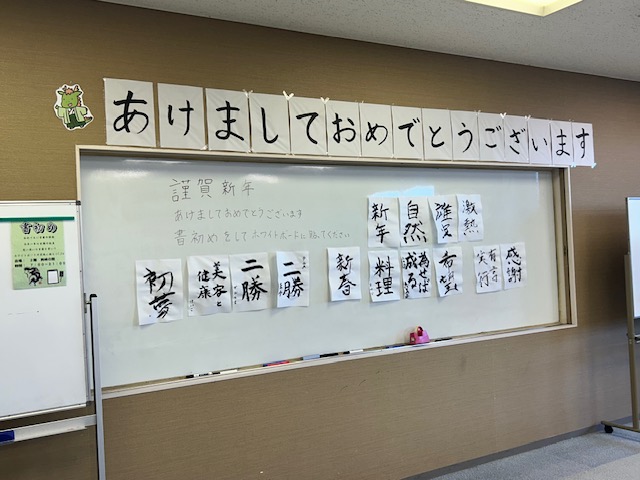 あけましておめでとうございます
謹賀新年
あけましておめでとうございます
書初めをしてホワイトボードに貼ってください
書初め
新年
自然
誰冥
激熱
初夢
美容と
健康
二勝
二勝
新春
料理
為せば
成る
希望
有言
実行
感謝